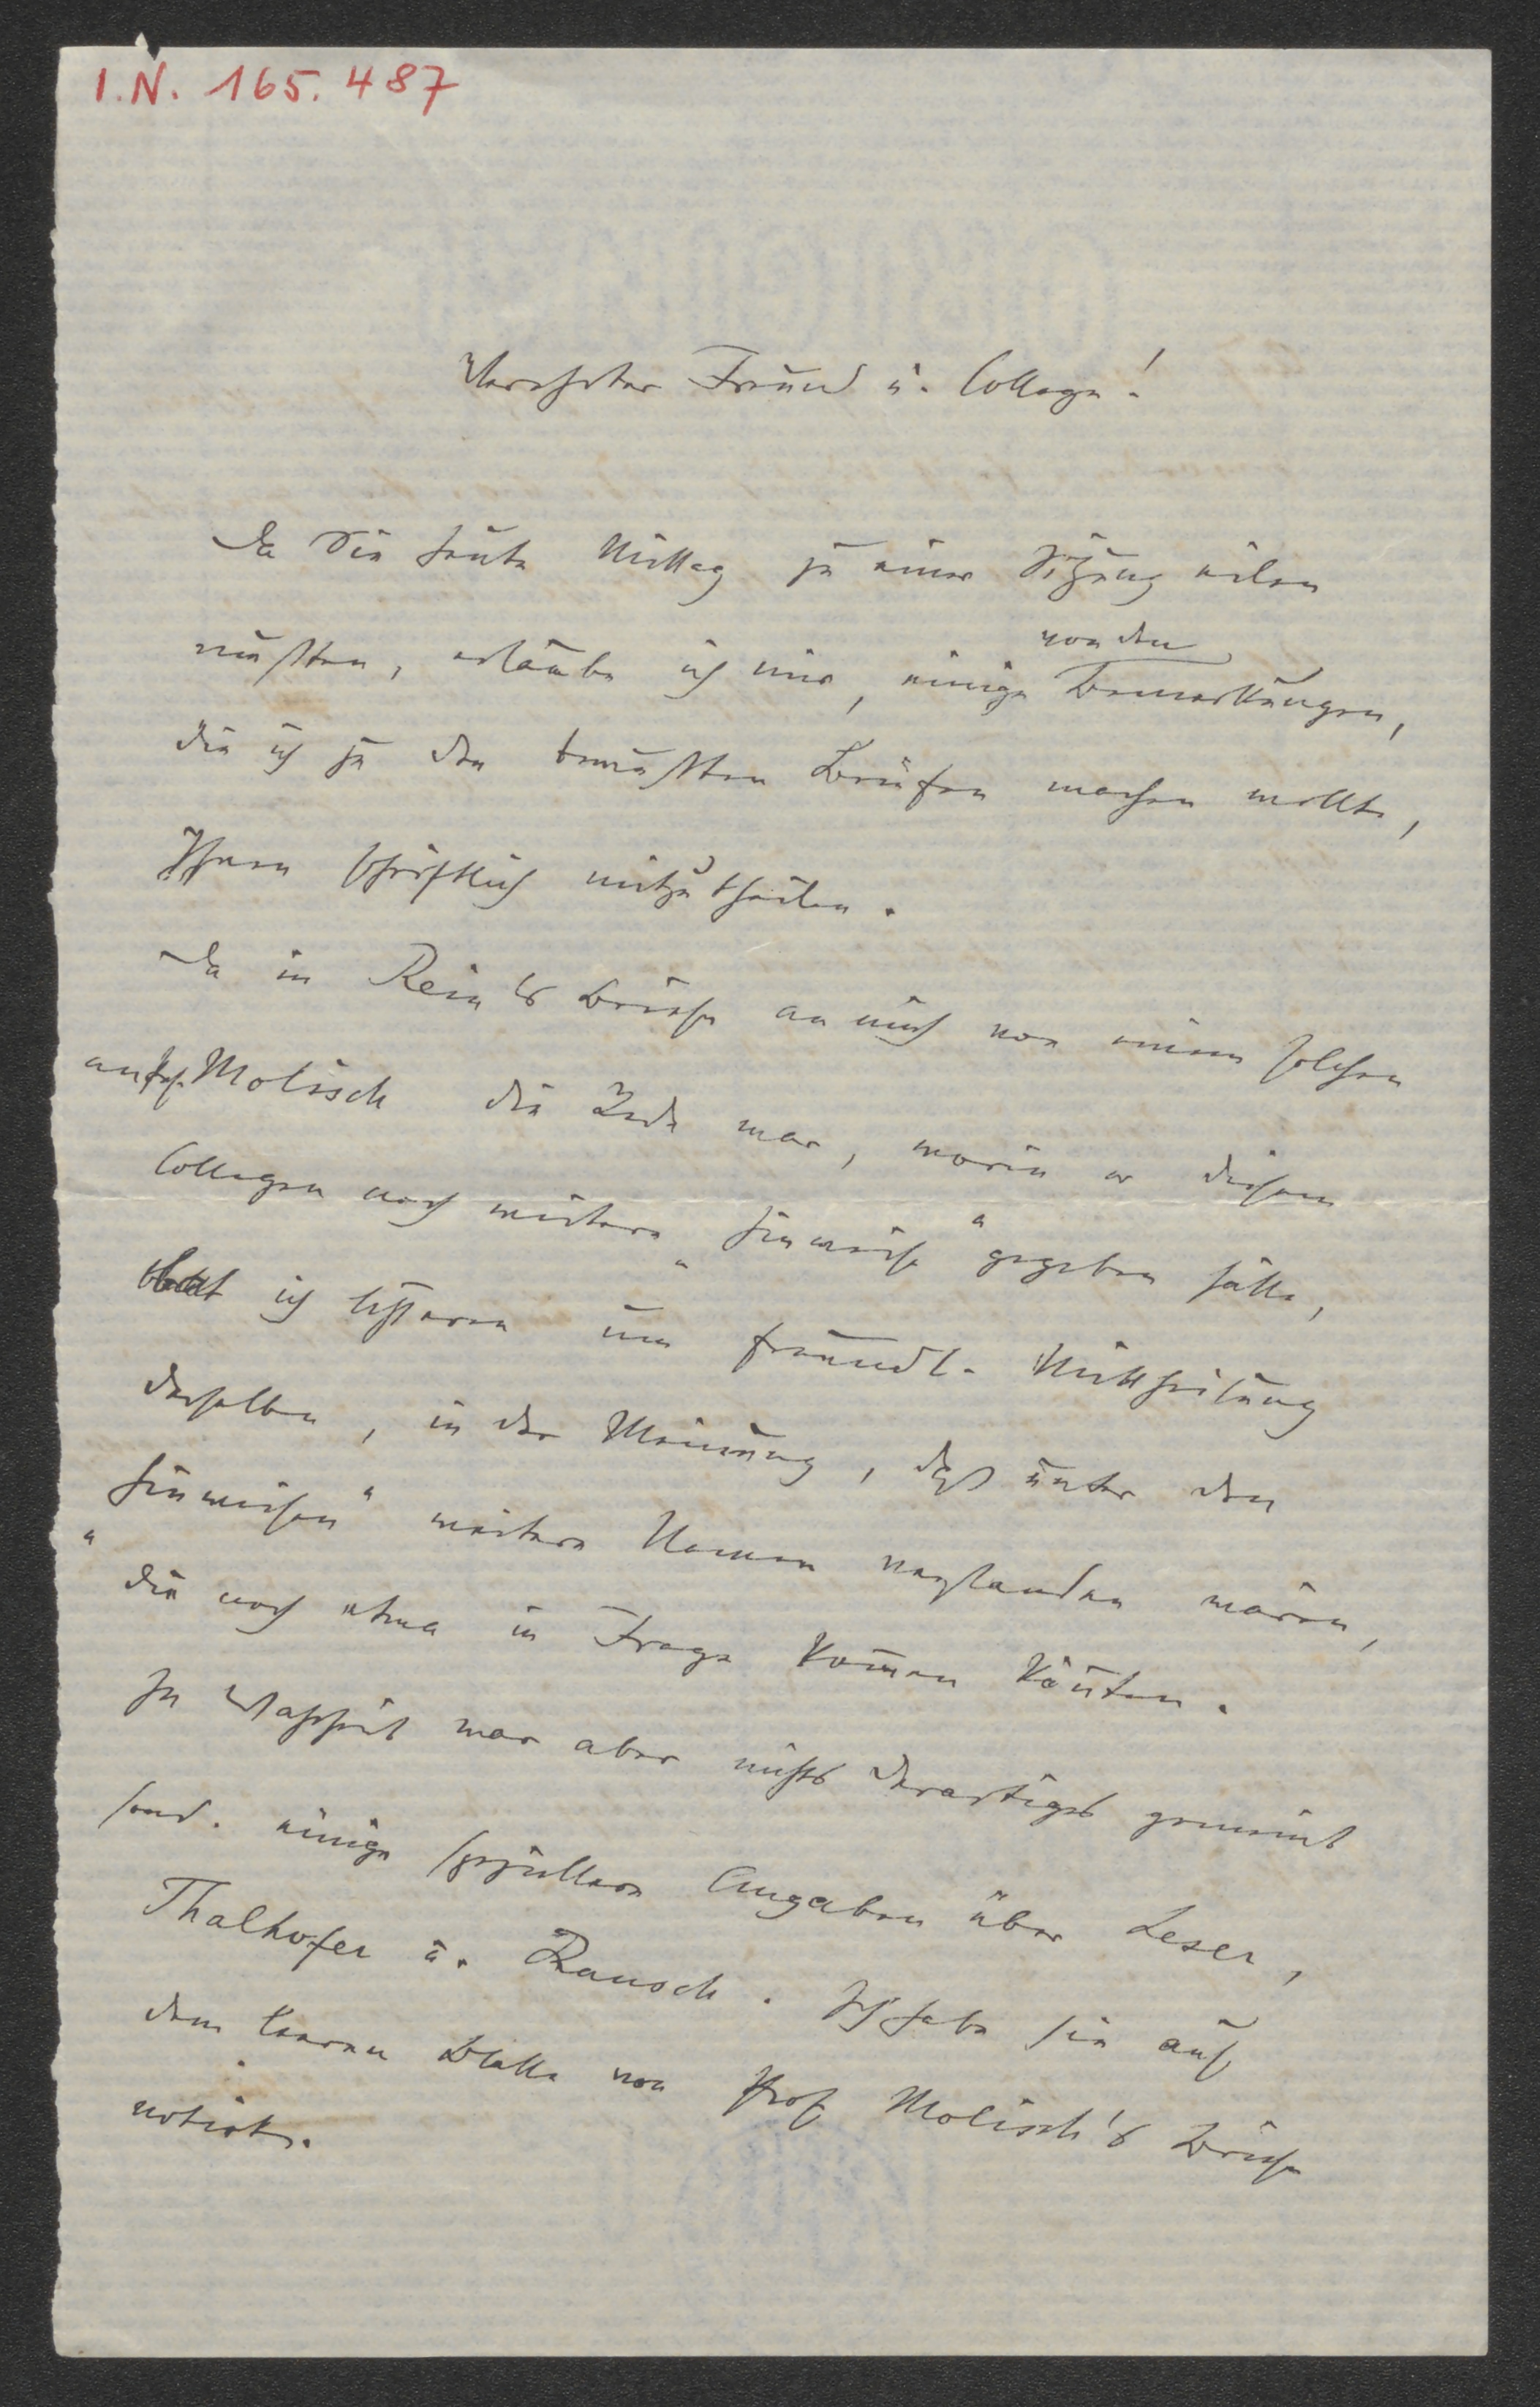 I.N. 165.487
Verehrter Freund u. College!
Da Sie heute Mittag zu einer Sitzung eilen
von den
mußten, erlaube ich mir, einige Bemerkungen,
die ich zu den bewußten Briefen machen wollte,
Ihnen schriftlich mitzutheilen.
Da in Rein's Briefe an mich von einem solchen
an Prof. Molisch die Rede war, worin er diesem
Collegen noch weitere „Hinweise“ gegeben hätte,
bat ich letzteren um freundl. Mittheilung
derselben, in der Meinung, daß unter den
„Hinweisen“ weitere Namen vorhanden wären,
die noch etwa in Frage kom̄en kön̄ten.
In Wahrheit war aber nichts derartiges gemeint
sond. einige speziellere Angaben über Leser,
Thalhofer u. Rausch. Ich habe sie auf
dem leeren Blatte von Prof Molisch's Briefe
notirt.